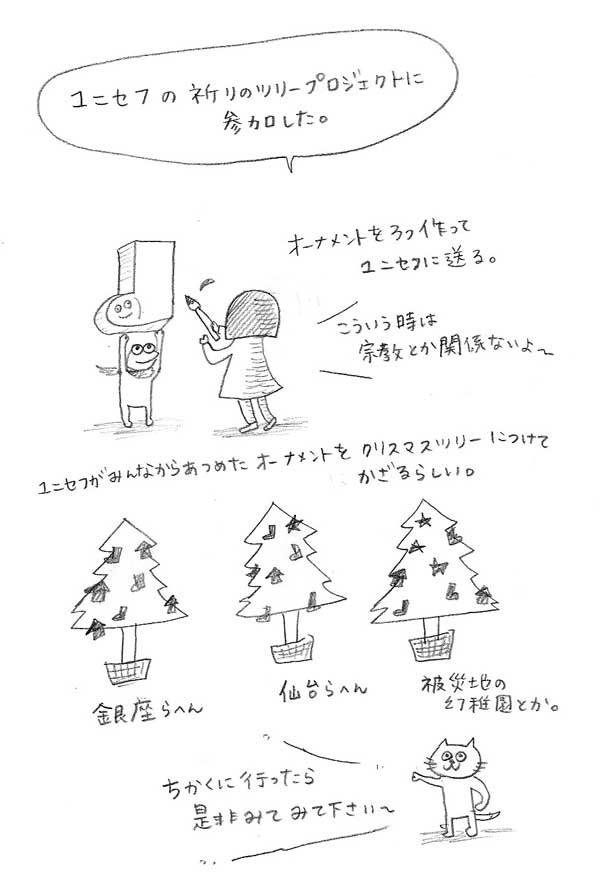 ユニセフの祈りのツリープロジェクトに
参加した。
オーナメントを3つ作って
ユニセフに送る。
こういう時は
宗教とか関係ないよ〜
ユニセフがみんなからあつめたオーナメントをクリスマスツリーにつけて
かざるらしい。
銀座らへん
仙台らへん
被災地の
幼稚園とか。
ちかくに行ったら
是非みてみて下さい〜